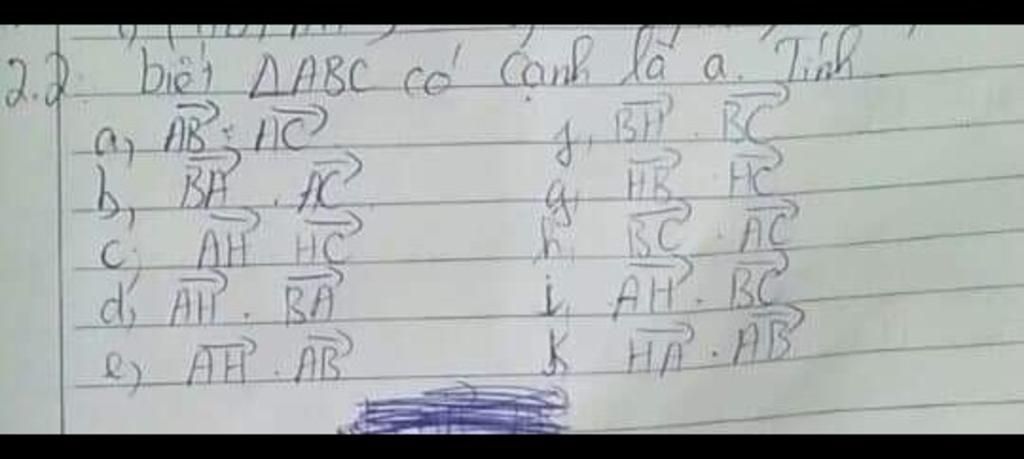 2.2: biết ΔABC có cạnh là a. Tính
a, AB→ . AC→
b, BA→ . AC→
c, AH→ HC→
d, AH→ . BA→
e) AH→ . AB→
f, BH→ . BC→
g, HB→ . HC→
h, BC→ . AC→
i, AH→ . BC→
k HA→ . AB→